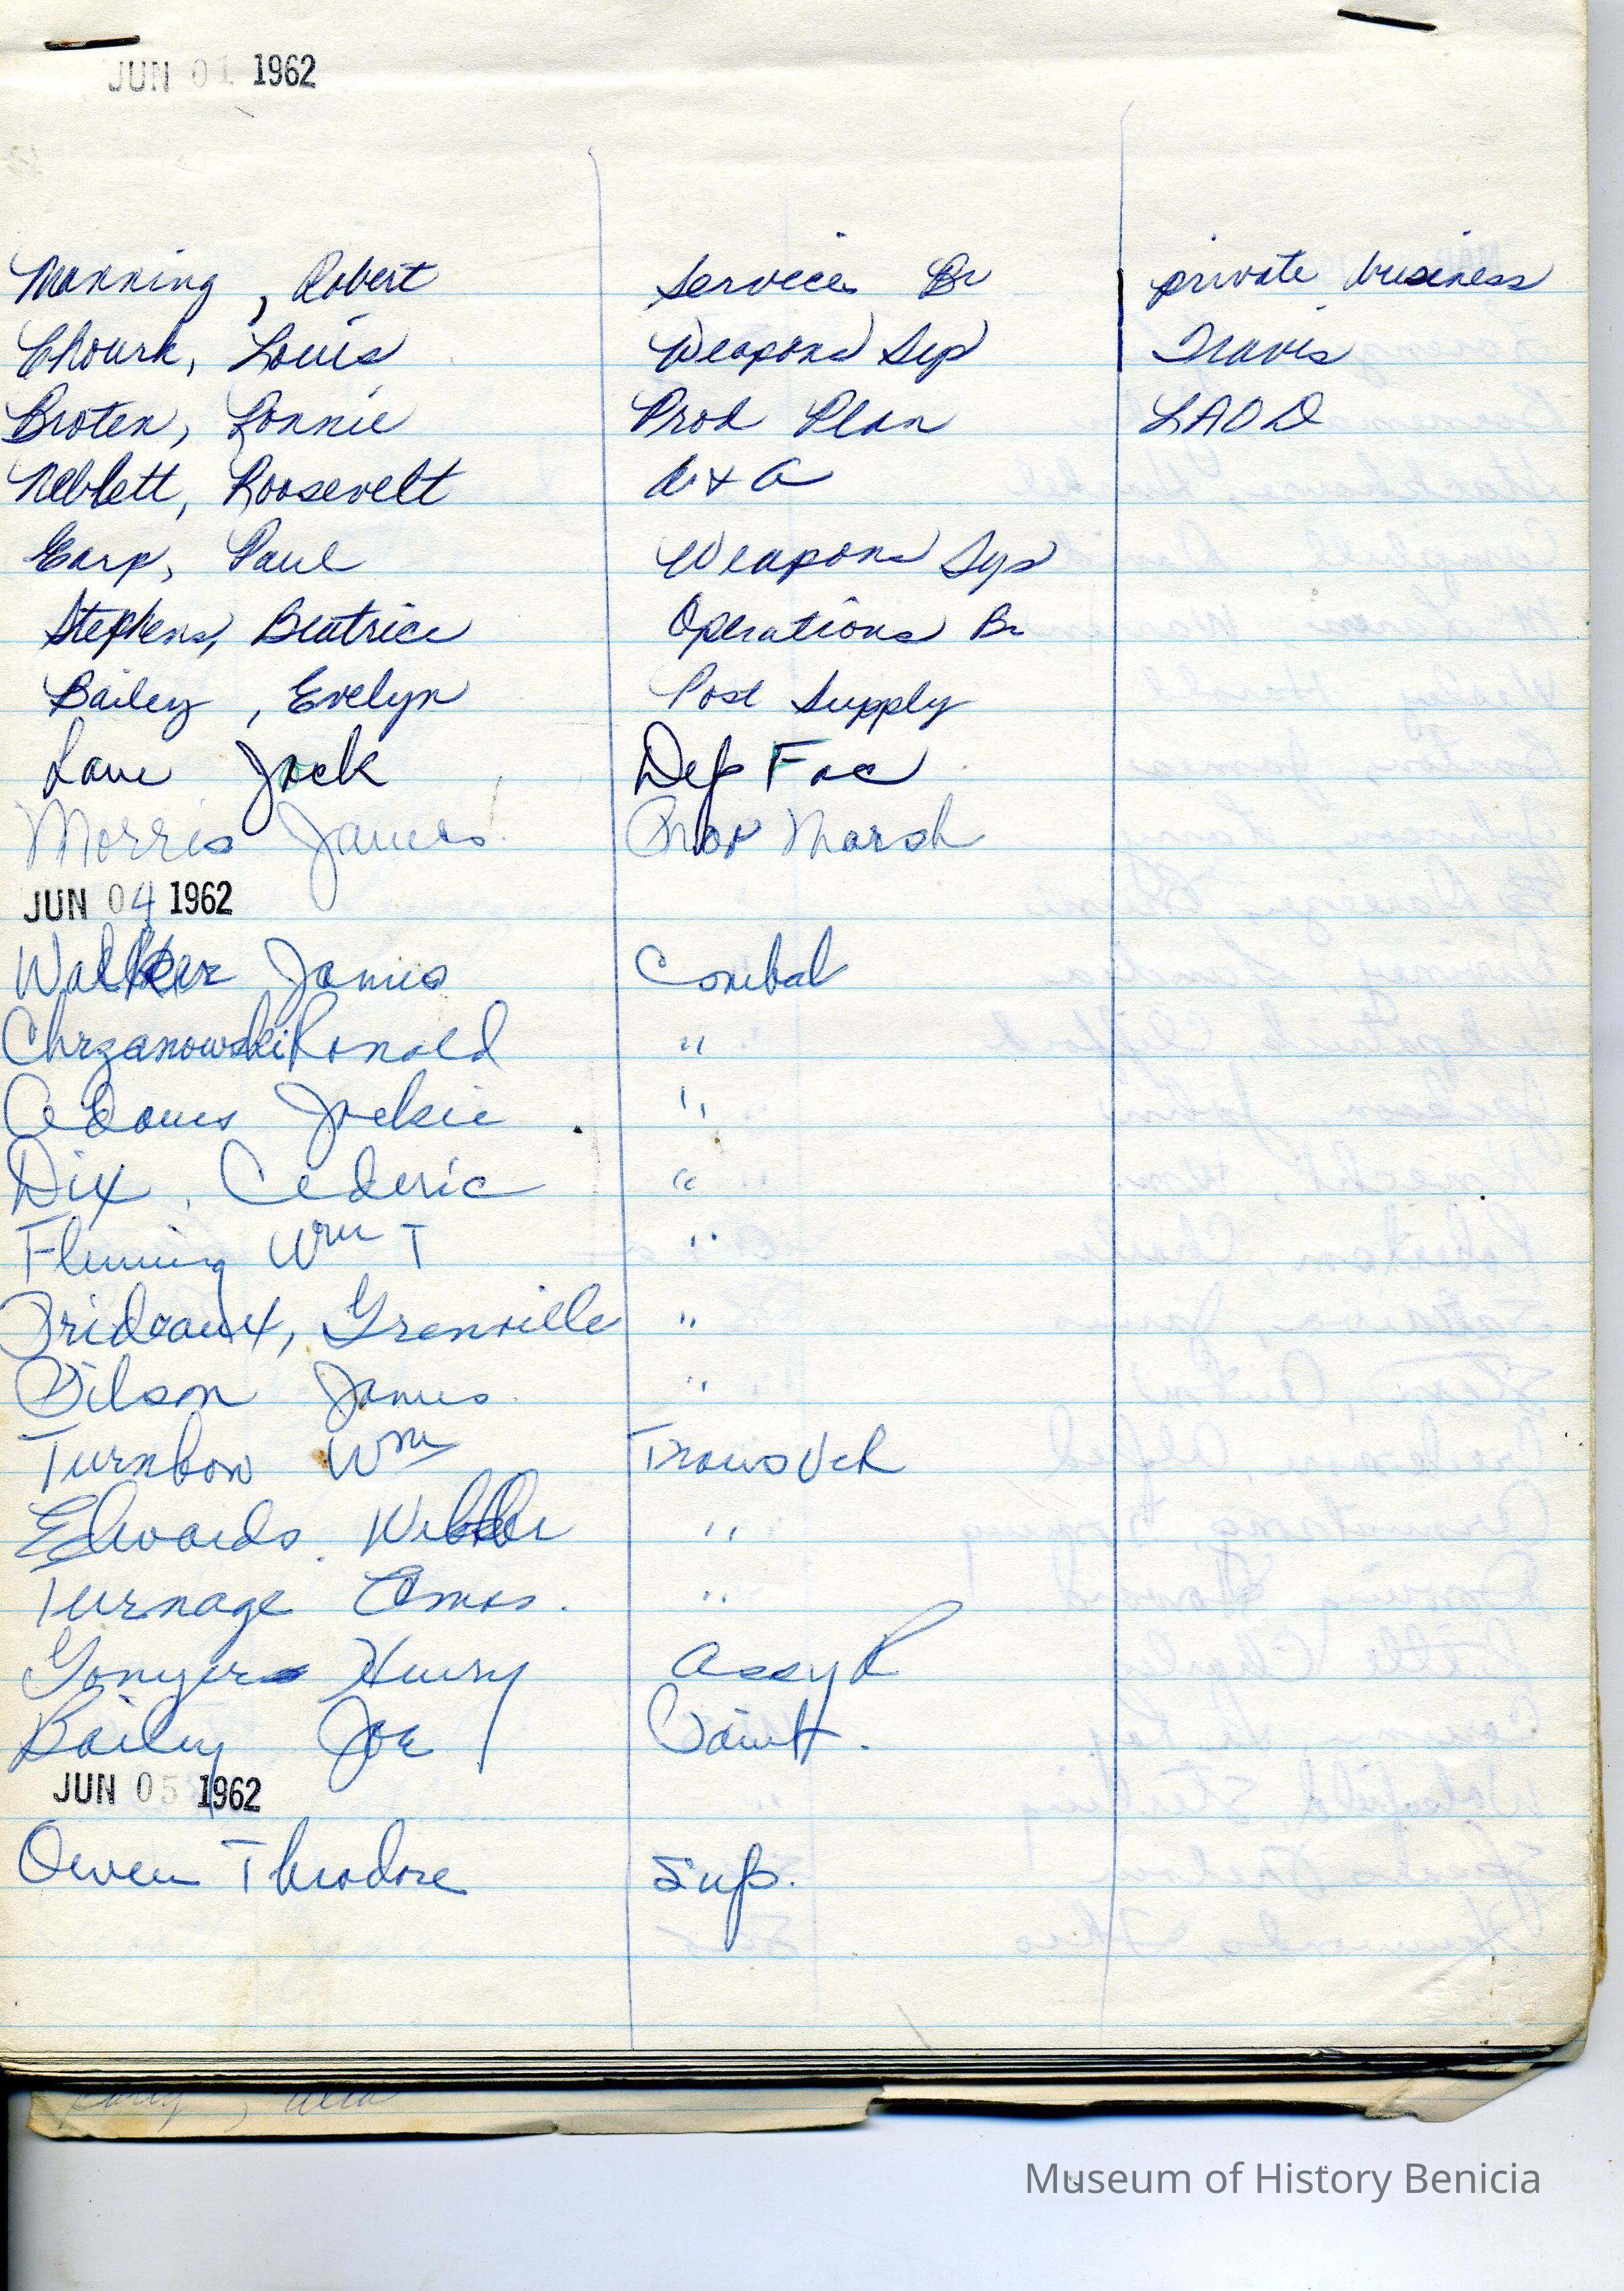 JUN 01 1962
Manning, Robert Services Br private business
Chourk, Louis Weapons Sys Travis
Broten, Lonnie Prod Plan LAOD
Neblett, Roosevelt
Earp, Paul Weapons Sys
Stephens, Beatrice Operations Br
Bailey, Evelyn Post Supply
Lane Jack Dep Fac
Morris James. Prov Marsh
JUN 04 1962
Walker James Combat
Chrzanowski Ronald "
Adams Jackie "
Dix, Cederic "
Fleming Wm T "
Prideaux, Grenville "
Gilson James "
Turnbow Wm Trans Veh
Edwards. "
Turnage Amos. "
Henry Assy R
Bailey Joe Paint.
JUN 05 1962
Owen Theodore Sup.
Museum of History Benicia